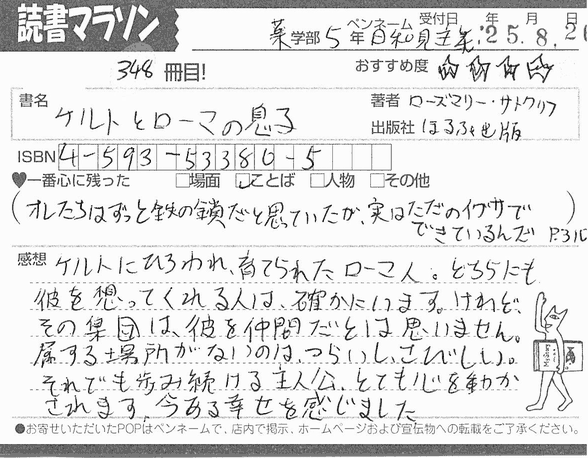 読書マラソン
薬学部 5年 ペンネーム 日和見主義 受付日 '25年.8月.26日
348 冊目! おすすめ度 ☆☆☆☆
書名 ケルトとローマの息子
著者 ローズマリー・サトクリフ
出版社 ほるぷ出版
ISBN 4-593-53380-5
♥一番心に残った □場面 ☑ことば □人物 □その他
(オレたちはずっと鉄の鎖だと思っていたが、実はただのイグサで
できているんだ P.316)
感想 ケルトにひろわれ、育てられたローマ人。どちらにも
彼を想ってくれる人は、確かにいます。けれど、
その集団は、彼を仲間だとは思いません。
属する場所がないのは、つらいし、さびしい。
それでも歩み続ける主人公、とても心を動か
されます。今ある幸せを感じました
●お寄せいただいたPOPはペンネームで、店内で掲示、ホームページおよび宣伝物への転載をご了承ください。